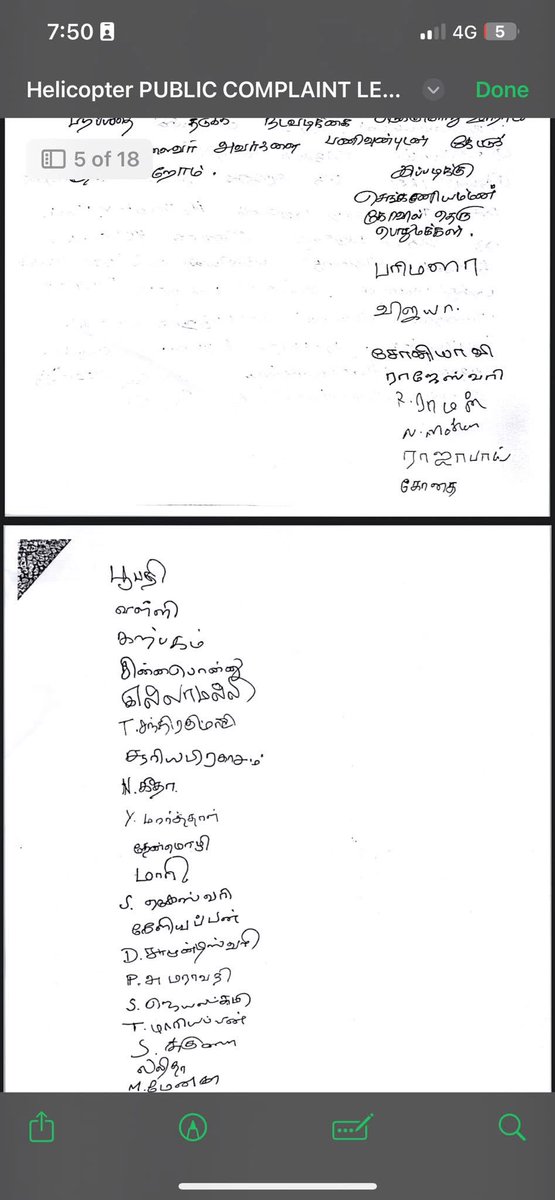 7:50
4G 5
Helicopter PUBLIC COMPLAINT LE...
Done
நடவடிக்கை
5 of 18
அவர்களை பணிவன்புடன்
றோம்.
இப்படிக்கு
செங்கணியம்மன்
கோவில் தெரு
பொதுமக்கள்.
பரிமளா
விஜயா.
ராஜேஸ்வரி
R. ராமன்
ராஜாபாய்
கோதை
பூபதி
வள்ளி
கற்பகம்
சின்னபொன்னு
T. சந்திரசேகரி
சூரியபிரகாசம்
N. கீதா.
Y. மார்த்தாள்
தேன்மொழி
மாரி
S.
D. சாமுண்டீஸ்வரி
P. அமராவதி
S. ஜெயலட்சுமி
T. மாரியப்பன்
S.
லலிதா
M. மேனகா